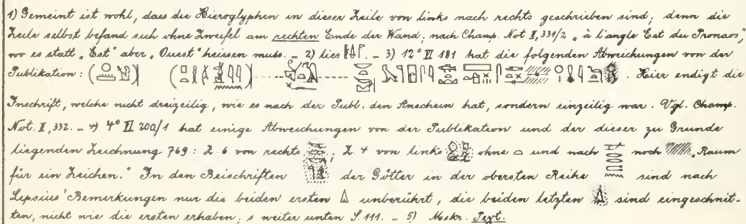 1) Gemeint ist wohl, dass die Hieroglyphen in dieser Zeile von links nach rechts geschrieben sind; denn die
Zeile selbst befand sich ohne Zweifel am rechten Ende der Wand; nach Champ. Not I, 331/2 „à l'angle Est du Pronaos",
wo es statt „Est" aber „Ouest" heissen muss. – 2) lies . – 3) 12° II 181 hat die folgenden Abweichungen von der
Publikation: ( ) ( . Hier endigt die
Inschrift, welche nicht dreizeilig, wie es nach der Publ. den Anschein hat, sondern einzeilig war. Vgl. Champ.
Not. I, 332. – 4) 4° II 200/1 hat einige Abweichungen von der Publikation und der dieser zu Grunde
liegenden Zeichnung 769: Z 6 von rechts ; Z 4 von links ohne und nach noch „Raum
für ein Zeichen." In den Beischriften der Götter in der obersten Reihe sind nach
Lepsius' Bemerkungen nur die beiden ersten unberührt, die beiden letzten sind eingeschnit-
ten, nicht wie die ersten erhaben; s weiter unten S. 111. – 5) Mskr: Text.